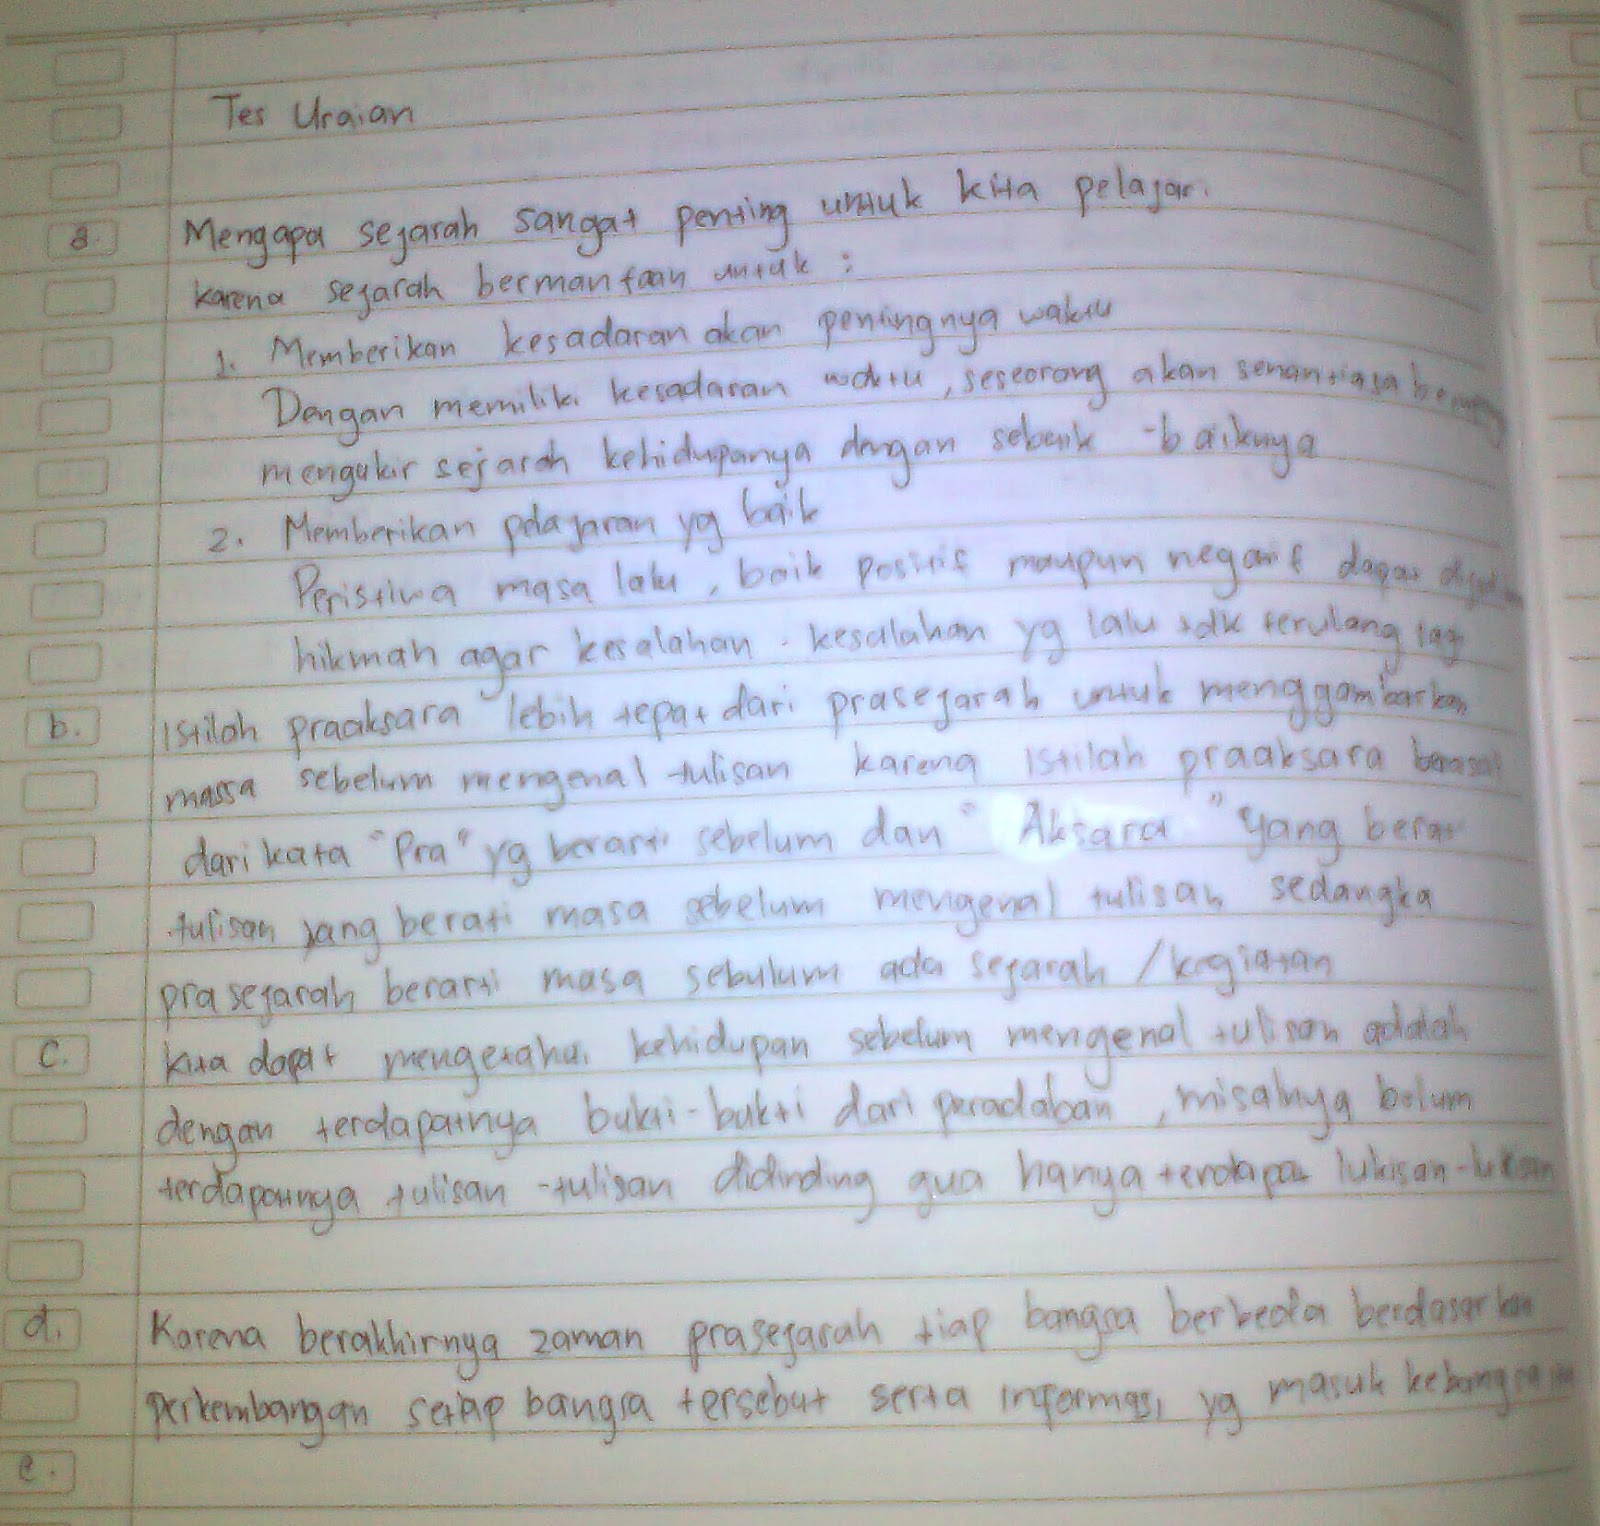 Tes Uraian
a. Mengapa sejarah sangat penting untuk kita pelajari
karena sejarah bermanfaan untuk :
1. Memberikan kesadaran akan pentingnya waktu
Dengan memiliki kesadaran waktu, seseorang akan senantiasa
mengukir sejarah kehidupanya dengan sebaik-baiknya
2. Memberikan pelajaran yg baik
Peristiwa masa lalu, baik positif maupun negatif dapat
hikmah agar kesalahan-kesalahan yg lalu tdk terulang lag
b. Istilah praaksara lebih tepat dari prasejarah untuk menggambarkan
massa sebelum mengenal tulisan karena istilah praaksara berasal
dari kata "Pra" yg berarti sebelum dan "Aksara" yang berati
tulisan yang berati masa sebelum mengenal tulisan sedangka
prasejarah berarti masa sebulum ada sejarah / kegiatan
c. Kita dapat mengetahui kehidupan sebelum mengenal tulisan adalah
dengan terdapatnya bukti-bukti dari peradaban, misalnya belum
terdapatnya tulisan-tulisan didinding gua hanya terdapat lukisan-lukisan
d. Karena berakhirnya zaman prasejarah tiap bangsa berbeda berdasarkan
perkembangan setiap bangsa tersebut serta informasi yg masuk
e.